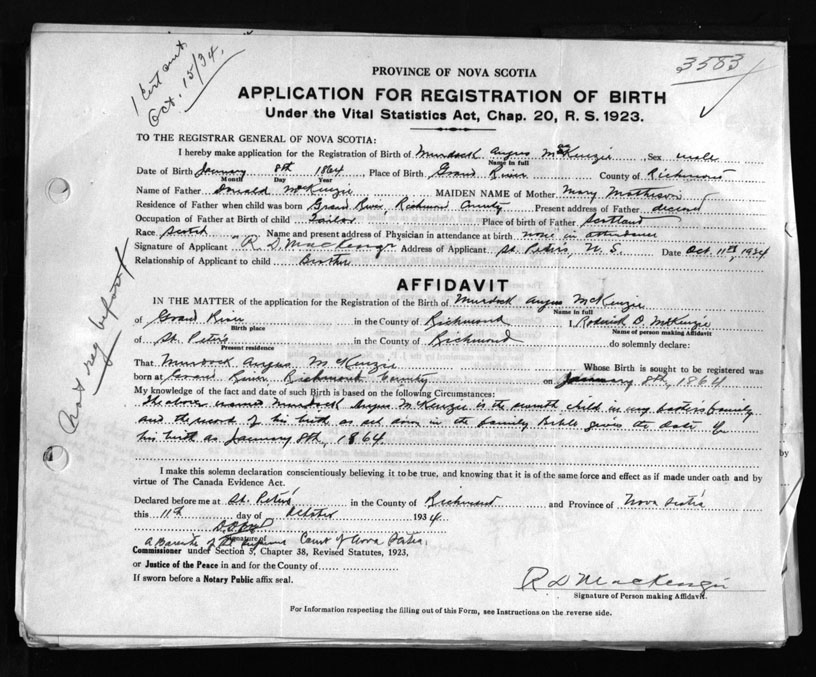 1 Cert out.
Oct. 15/34.
3583
PROVINCE OF NOVA SCOTIA
APPLICATION FOR REGISTRATION OF BIRTH
Under the Vital Statistics Act, Chap. 20, R. S. 1923.
TO THE REGISTRAR GENERAL OF NOVA SCOTIA:
I hereby make application for the Registration of Birth of Murdock Angus McKenzie Sex male
Name in full
Date of Birth January 8th 1864 Place of Birth Grand River County of Richmond
Month Day Year
Name of Father Donald McKenzie MAIDEN NAME of Mother Mary Matheson
Residence of Father when child was born Grand River, Richmond County Present address of Father deceased
Occupation of Father at Birth of child Tailor Place of birth of Father Scotland
Race Scotch Name and present address of Physician in attendance at birth none in attendance
Signature of Applicant "R D MacKenzie Address of Applicant St. Peters, N. S. Date Oct. 11th, 1934
Relationship of Applicant to child Brother
AFFIDAVIT
IN THE MATTER of the application for the Registration of the Birth of Murdock Angus McKenzie
Name in full
of Grand River in the County of Richmond I, Roderick D. McKenzie
Birth place Name of person making Affidavit
of St. Peters in the County of Richmond do solemnly declare:
Present residence
That Murdock Angus McKenzie Whose Birth is sought to be registered was
born at Grand River, Richmond County on January 8th, 1864
My knowledge of the fact and date of such Birth is based on the following Circumstances:
The above named Murdock Angus McKenzie is the seventh child in my father's family
and the record of his birth as set down in the family Bible gives the date of
his birth as January 8th, 1864.
I make this solemn declaration conscientiously believing it to be true, and knowing that it is of the same force and effect as if made under oath and by
virtue of The Canada Evidence Act.
Declared before me at St. Peters in the County of Richmond and Province of Nova Scotia
this 11th day of October 1934.
Signature of
A Barrister of the Supreme Court of Nova Scotia.
Commissioner under Section 5, Chapter 38, Revised Statutes, 1923,
or Justice of the Peace in and for the County of
If sworn before a Notary Public affix seal.
R D MacKenzie
Signature of Person making Affidavit.
For Information respecting the filling out of this Form, see Instructions on the reverse side.
Not reg before